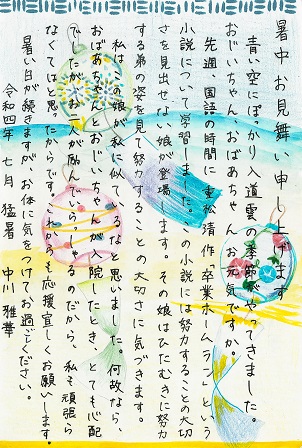 暑中お見舞い申し上げます
青い空にぽっかり入道雲の季節がやってきました。
おじいちゃん、おばあちゃん お元気ですか。
先週、国語の時間に重松清作「卒業ホームラン」という
小説について学習しました。この小説には努力することの大切
さを見出せない娘が登場します。その娘はひたむきに努力
する弟の姿を見て努力することの大切さに気づきます。
私はこの娘が私に似ているなと思いました。何故なら、
おばあちゃんとおじいちゃんが入院したとき、とても心配
でしたがお二人が励んでいらっしゃるのだから、私も頑張ら
なくてはと思ったからです。これからも応援宜しくお願いします。
暑い日が続きますが、お体に気をつけてお過ごしください。
令和四年 七月 猛暑 中川 雅華